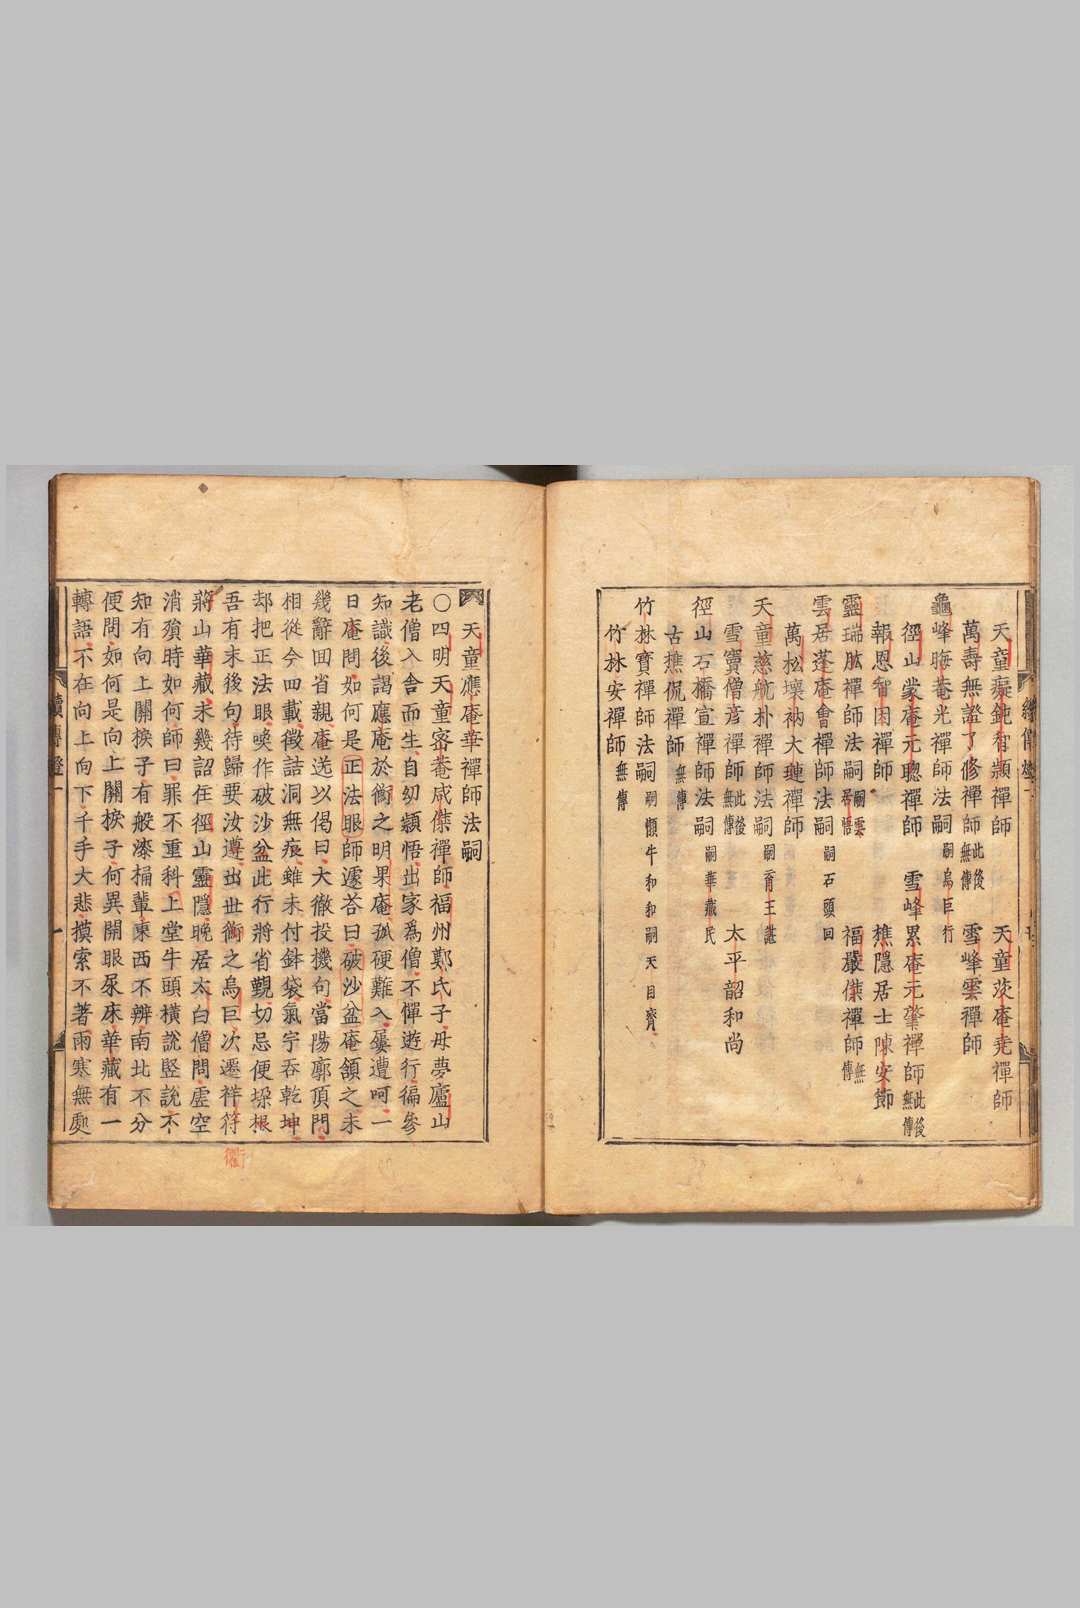 天童癡鈍智頴禪師　天童茨庵尭禪師
萬壽無證了修禪師此後無傳　雪峰雲禪師
龜峰晦菴光禪師法嗣嗣烏巨行
徑山蒙庵元聰禪師　雪峰累庵元肇禪師此後無傳
報恩智因禪師　樵隱居士陳安節
靈瑞肱禪師法嗣嗣雲居悟　福嚴傑禪師無傳
雲居蓬庵會禪師法嗣嗣石頭回
萬松壞衲大璉禪師
天童慈航朴禪師法嗣嗣育王諶
雪竇僧彦禪師此後無傳　太平韶和尚
徑山石橋宣禪師法嗣嗣華藏民
古樵侃禪師無傳
竹林寳禪師法嗣嗣懶牛和和嗣天目齊
竹林安禪師無傳
續傳燈
天童應庵華禪師法嗣
〇四明天童宻菴咸傑禪師福州鄭氏子母夢廬山
老僧入舍而生自幼頴悟出家爲僧不憚遊行徧參
知識後謁應庵於衢之明果庵孤硬難入屢遭呵一
日庵問如何是正法眼師遽荅曰破沙盆庵頷之未
幾辭囬省親庵送以偈曰大徹投機句當陽廓頂門
相從今四載徵詰洞無痕雖未付鉢袋氣宇吞乾坤
却把正法眼喚作破沙盆此行將省覲切忌便垜根
吾有末後句待歸要汝遵出世衢之烏巨次遷祥符
蔣山華藏未幾詔住徑山靈隱晚居太白僧問虚空
消殞時如何師曰罪不重科上堂牛頭橫說竪說不
知有向上關棙子有般漆桶輩東西不辨南北不分
便問如何是向上關棙子何異開眼尿床華藏有一
轉語不在向上向下千手大悲摸索不著雨寒無處
續傳燈一
衢